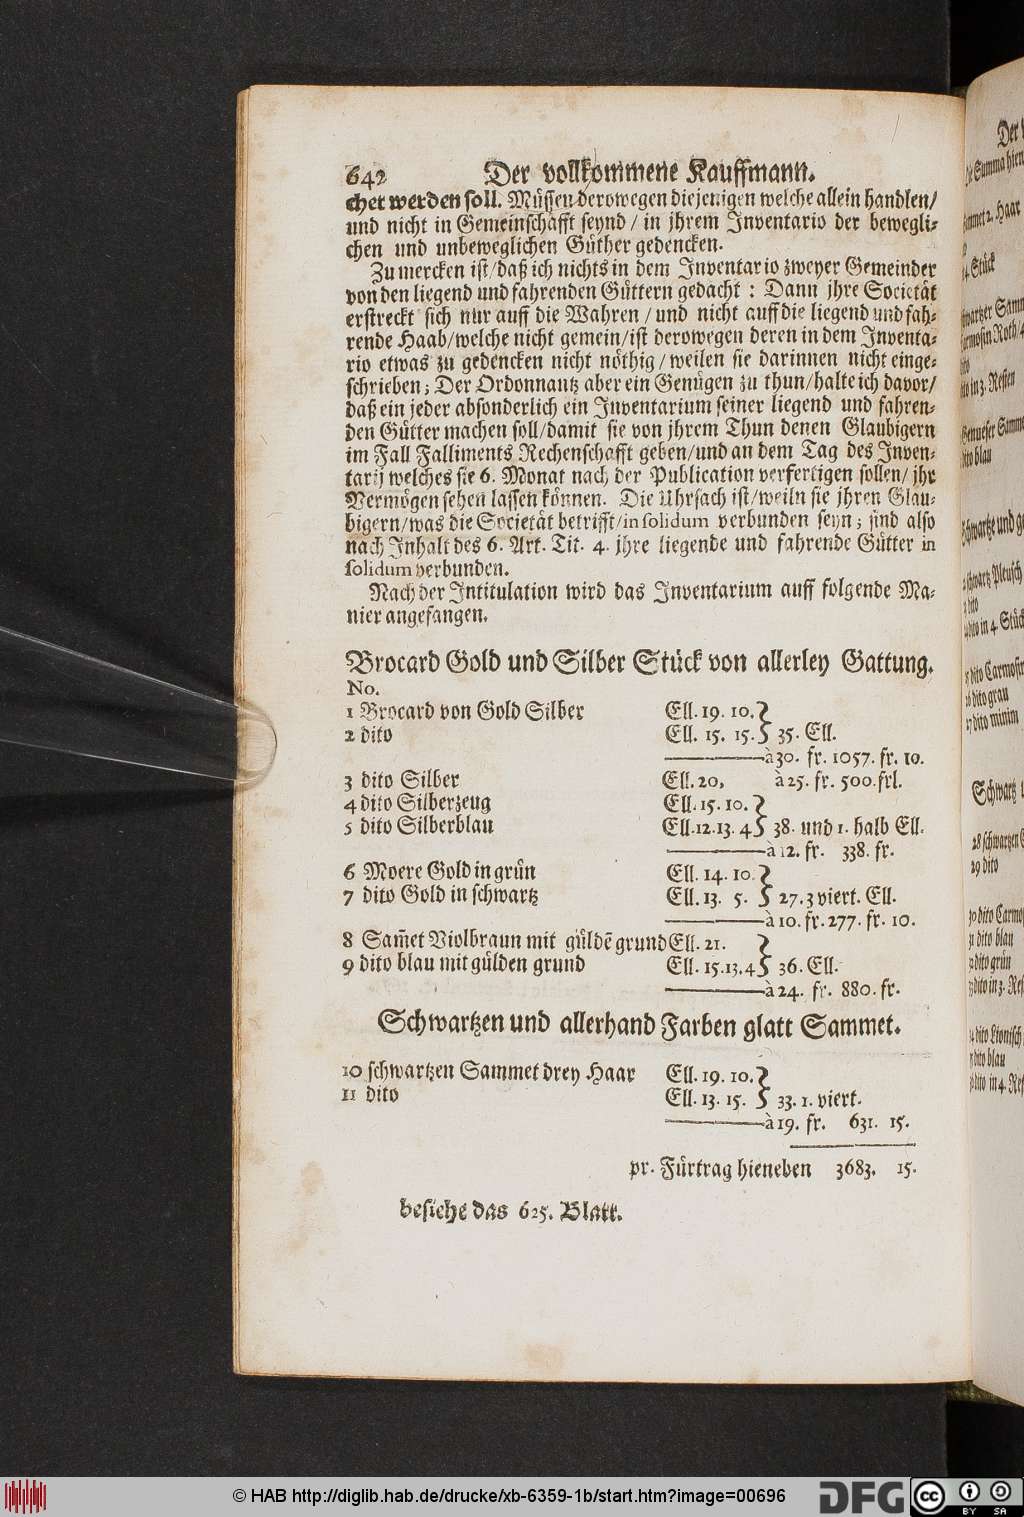 642 Der vollkommene Kauffmann.
chet werden soll. Müssen derowegen diejenigen welche allein handlen/
und nicht in Gemeinschafft seynd / in jhrem Inventario der bewegli-
chen und unbeweglichen Güther gedencken.
Zu mercken ist/daß ich nichts in dem Inventario zweyer Gemeinder
von den liegend und fahrenden Güttern gedacht : Dann jhre Societät
erstreckt sich nur auff die Wahren / und nicht auff die liegend und fah-
rende Haab/welche nicht gemein/ist derowegen deren in dem Inventa-
rio etwas zu gedencken nicht nöthig / weilen sie darinnen nicht einge-
schrieben; Der Ordonnantz aber ein Genügen zu thun/halte ich davor/
daß ein jeder absonderlich ein Inventarium seiner liegend und fahren-
den Gütter machen soll/damit sie von jhrem Thun denen Glaubigern
im Fall Falliments Rechenschafft geben/und an dem Tag des Inven-
tarij welches sie 6. Monat nach der Publication verfertigen sollen/ jhr
Vermögen sehen lassen können. Die Uhrsach ist/weiln sie jhren Glau-
bigern/was die Societät betrifft/in solidum verbunden seyn; sind also
nach Inhalt des 6. Art. Tit. 4. jhre liegende und fahrende Gütter in
solidum verbunden.
Nach der Intitulation wird das Inventarium auff folgende Ma-
nier angefangen.
Brocard Gold und Silber Stück von allerley Gattung.
No.
1 Brocard von Gold Silber Ell. 19. 10. }
2 dito Ell. 15. 15. } 35. Ell.
à 30. fr. 1057. fr. 10.
3 dito Silber Ell. 20, à 25. fr. 500. frl.
4 dito Silberzeug Ell. 15. 10. }
5 dito Silberblau Ell. 12. 13. 4 } 38. und 1. halb Ell.
à 12. fr. 338. fr.
6 Moere Gold in grün Ell. 14. 10. }
7 dito Gold in schwartz Ell. 13. 5. } 27. 3 viert. Ell.
à 10. fr. 277. fr. 10.
8 Sam̃et Violbraun mit güldẽ grund Ell. 21. }
9 dito blau mit gülden grund Ell. 15. 13. 4 } 36. Ell.
à 24. fr. 880. fr.
Schwartzen und allerhand Farben glatt Sammet.
10 schwartzen Sammet drey Haar Ell. 19. 10. }
11 dito Ell. 13. 15. } 33. 1. viert.
à 19. fr. 631. 15.
pr. Fürtrag hieneben 3683. 15.
besiehe das 625. Blatt.
Der
Summa hien
2. Haar
4. Stück
Carmosin Roth/
dito
dito in 3. Resten
Genueser Samme
dito blau
Schwartze und
schwartz Pleusch
dito
dito in 4. Stück
dito Carmosin
dito grau
dito minim
Schwartz
28 schwartzen
29 dito
30 dito Carmo
31 dito blau
dito grün
dito in 3. Res
dito Lionisch
dito blau
dito in 4. Res
© HAB http://diglib.hab.de/drucke/xb-6359-1b/start.htm?image=00696
DFG
cc
BY SA